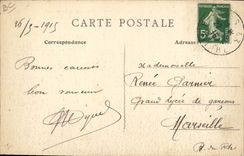 26/3-1915
CARTE POSTALE
Correspondance
Adresse
Bonnes caresses
bon souvenir
Mademoiselle
Renée Garnier
Grand lycée de garçons
Marseille
B. du Rh.
5c